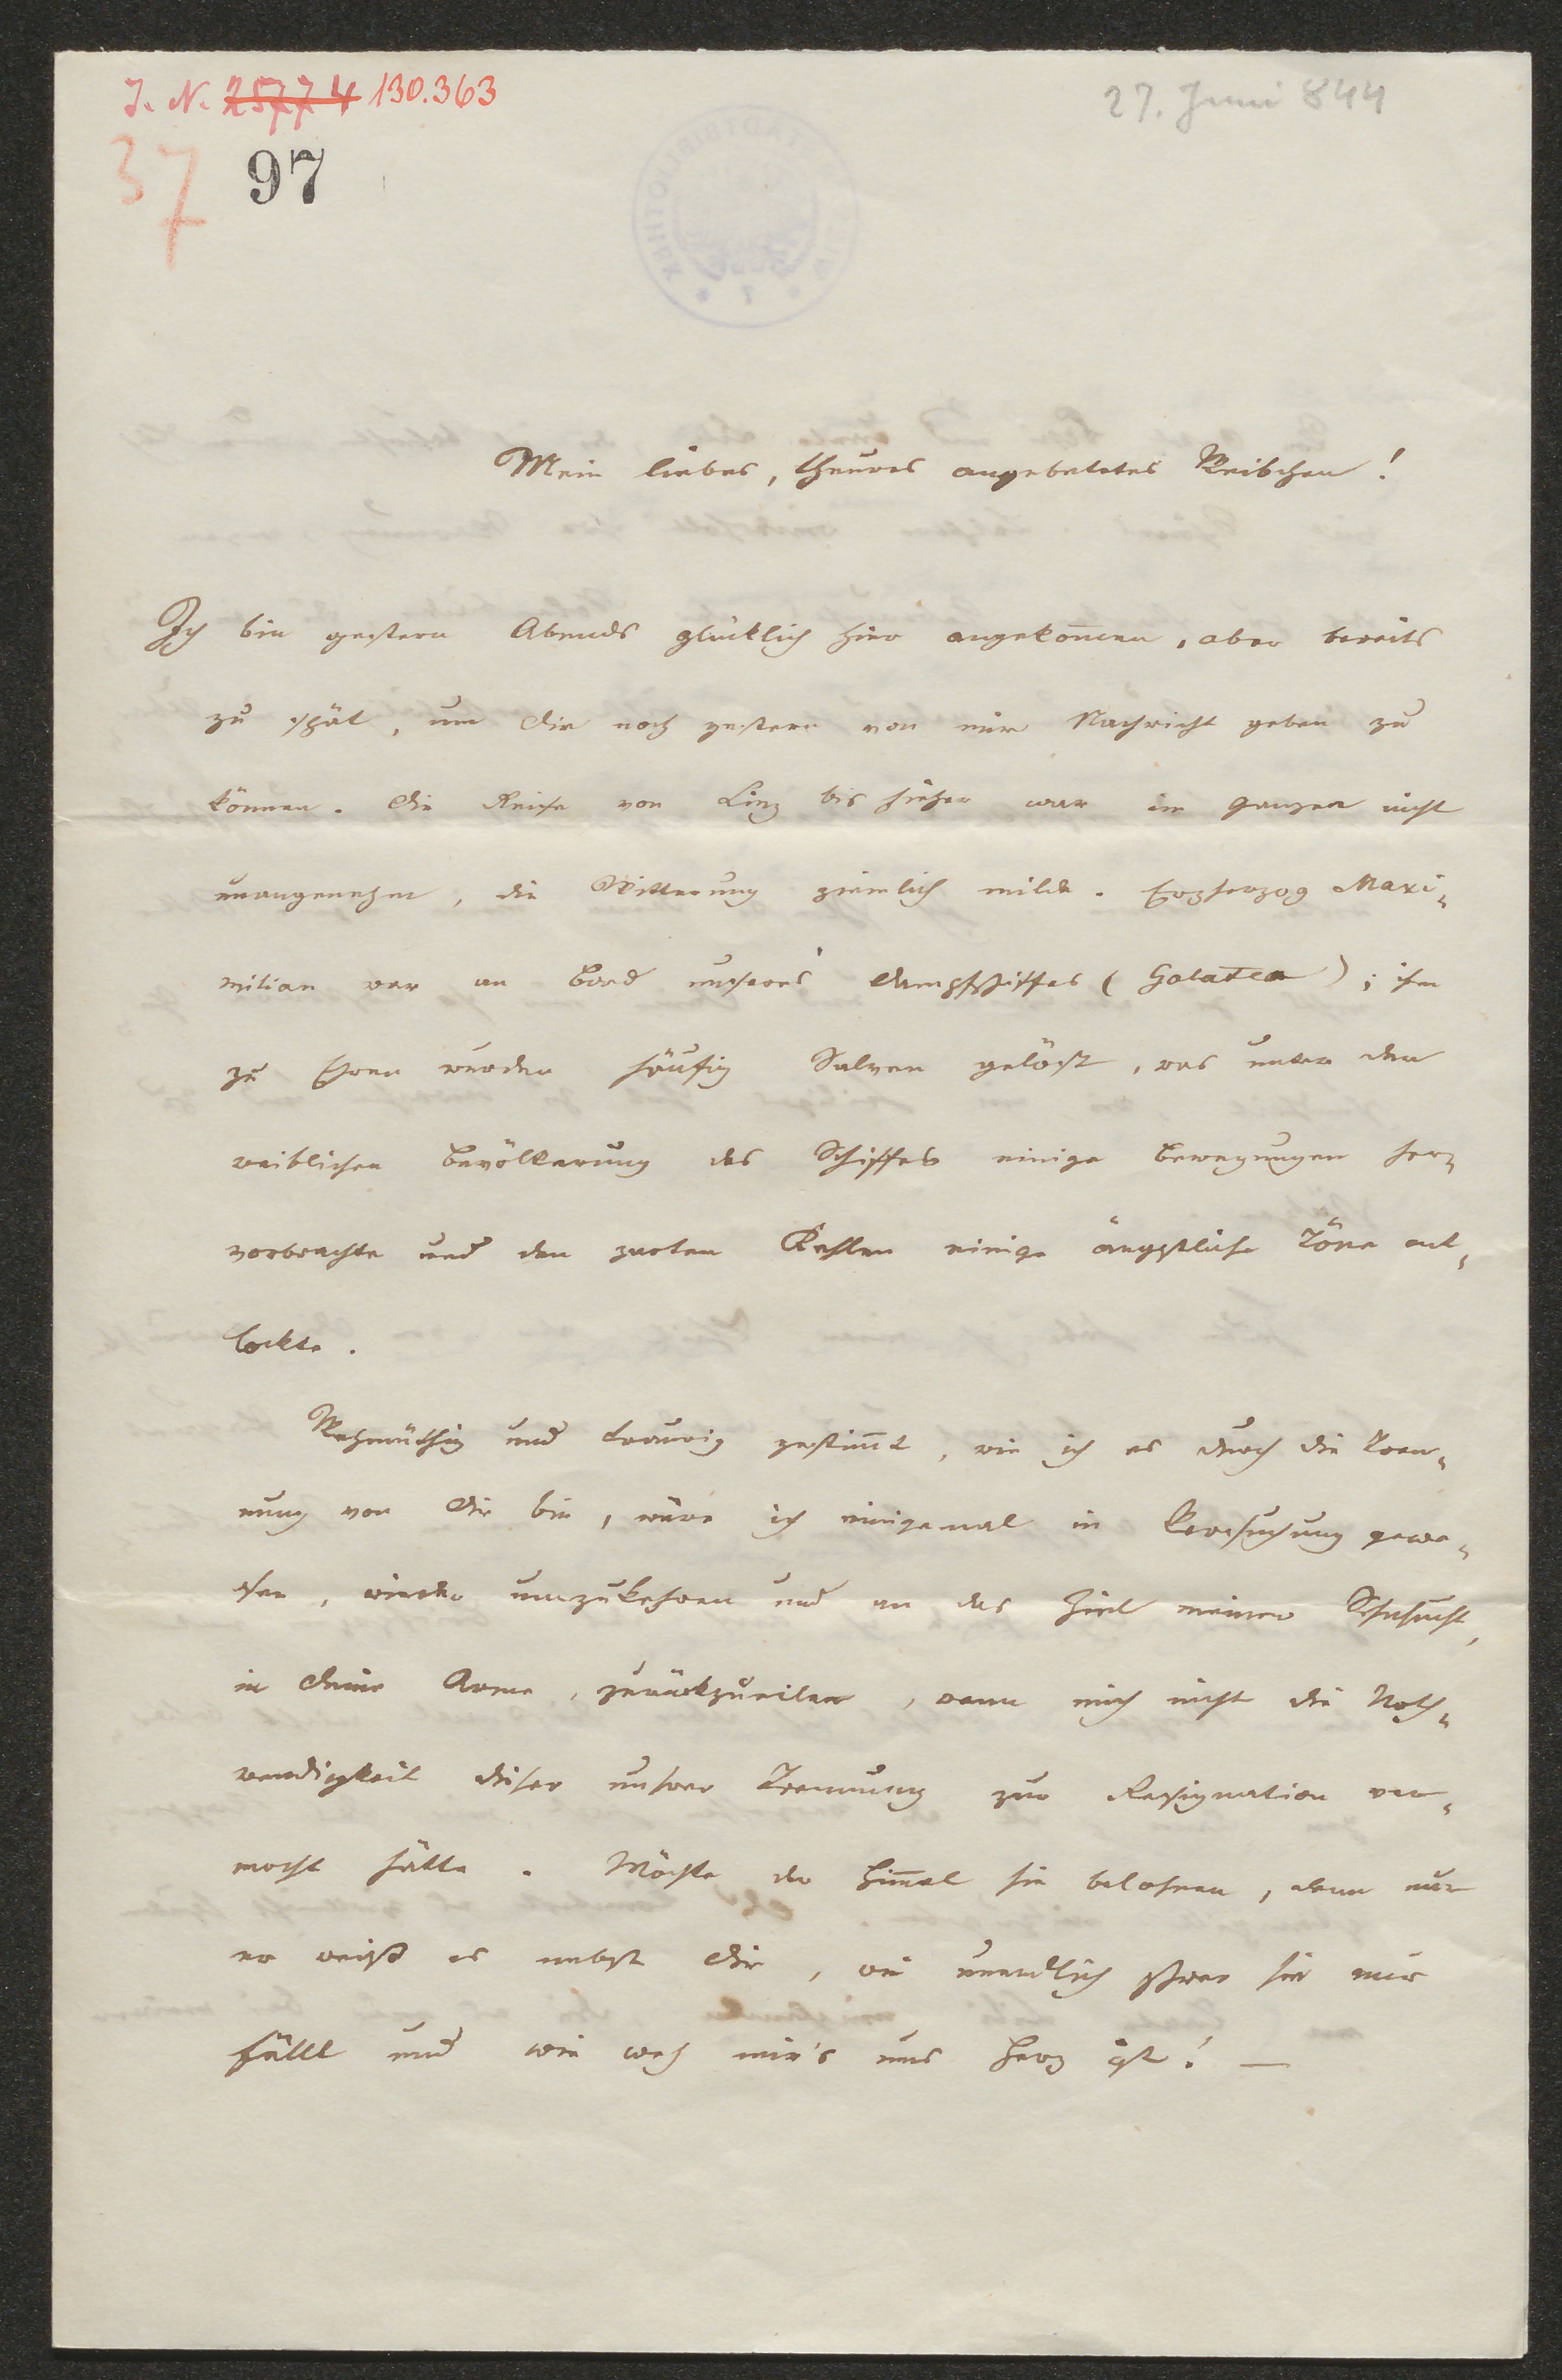 I. N. 25774 130.363
27. Juni 844
37 97
Mein liebes, theures angebetetes Weibchen!
Ich bin gestern Abends glücklich hier angekom̄en, aber bereits
zu spät, um Dir noch gestern von mir Nachricht geben zu
können. Die Reise von Linz bis hieher war im Ganzen nicht
unangenehm, die Witterung ziemlich milde. Erzherzog Maxi-
milian war an Bord unseres Dampfschiffes (Galatea); ihm
zu Ehren wurden häufig Salven gelöst, was unter der
weiblichen Bevölkerung des Schiffes einige Bewegungen her-
vorbrachte und den zarten Kehlen einige ängstliche Töne ent-
lockte.
Wehmüthig und traurig gestim̄t, wie ich es durch die Tren-
nung von Dir bin, wäre ich einigemal in Versuchung gewe-
sen, wieder umzukehren und an das Ziel meiner Sehnsucht,
in Deine Arme, zurückzueilen, wenn mich nicht die Noth-
wendigkeit dieser unserer Trennung zur Resignation ver-
mocht hätte. Möchte der Him̄el sie belohnen, denn nur
er weiß es nebst Dir, wie unendlich schwer sie mir
fällt und wie weh mir's ums Herz ist! —